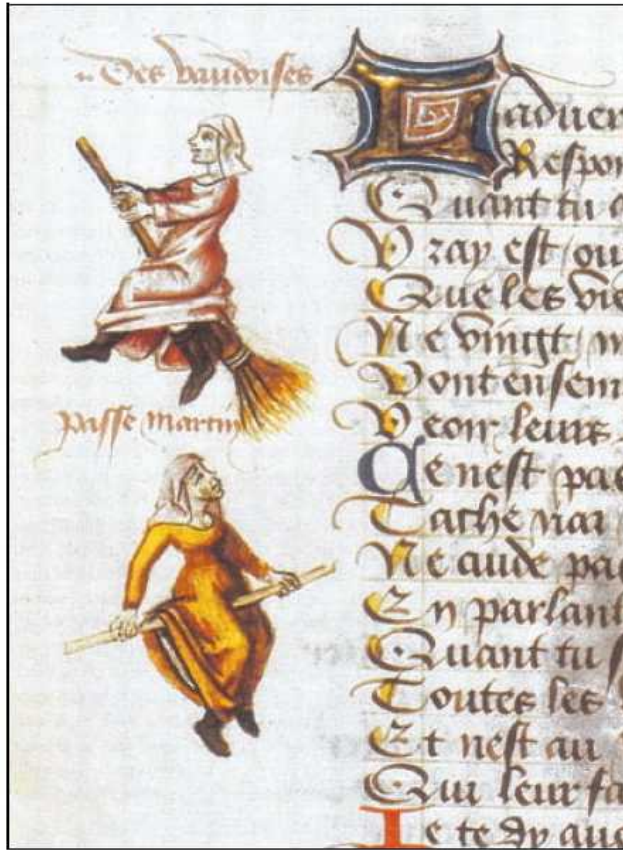 Des vaudoises
passe martin
Laduer
Respon
Quant tu
Vray est / ou
Que les vie
Ne vingt
Vont ensem
Veoir leurs
Ce nest pas
Tache nai
Ne cuide pa
En parlant
Quant tu
Toutes les
Et nest au
Qui leur fa
Je te dy que